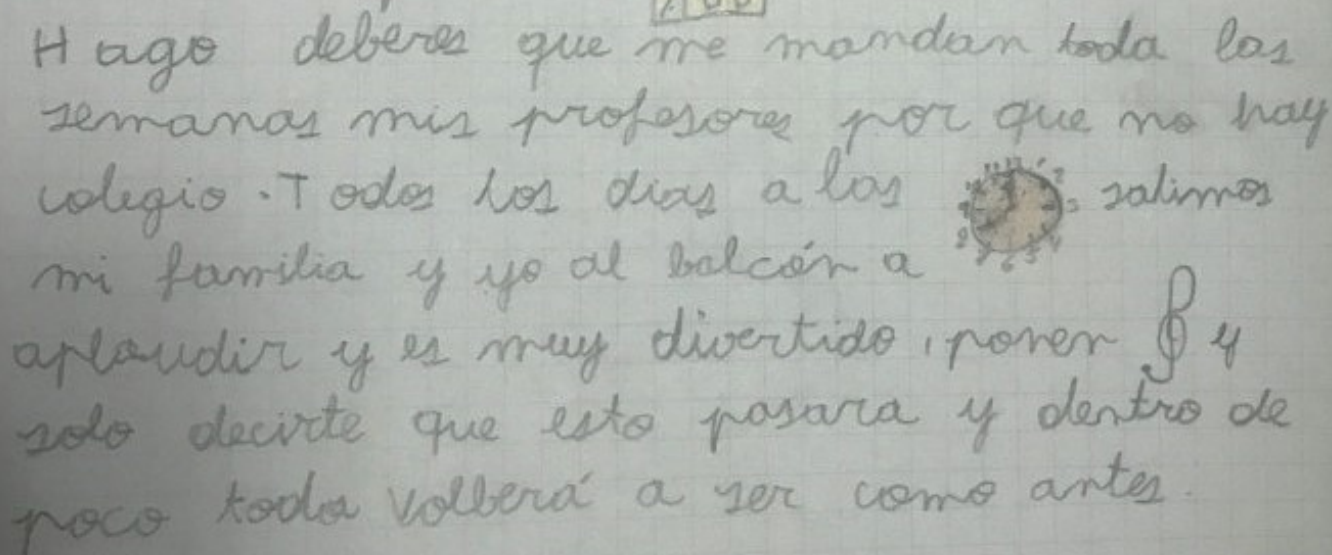 Hago deberes que me mandan toda las
semanas mis profesores por que no hay
colegio. Todos los dias a las salimos
mi familia y yo al balcón a
aplaudir y es muy divertido, ponen y
solo decirte que esto pasara y dentro de
poco toda vollberá a ser como antes.